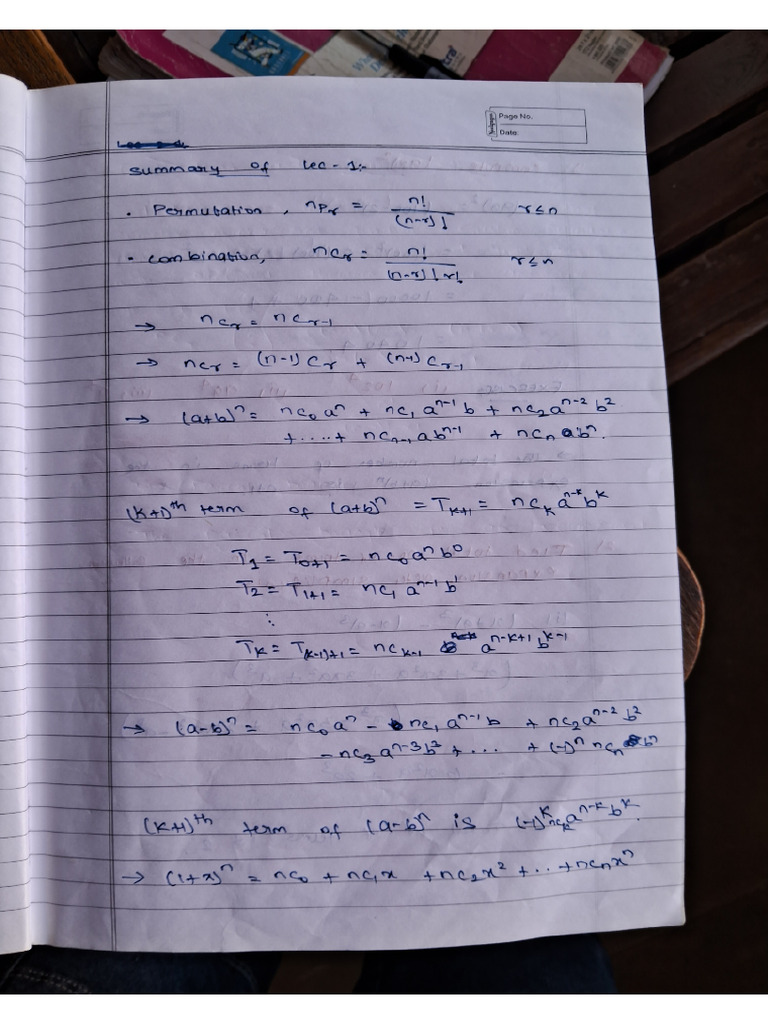 Page No.
Date:
Summary of Lec-1:-
• Permutation, nPr = n!/(n-r)! r≤n
• Combination, nCr = n!/(n-r)! r! r≤n
→ nCr = nCr-1
→ nCr = (n-1)Cr + (n-1)Cr-1
→ (a+b)^n = nC0 a^n + nC1 a^n-1 b + nC2 a^n-2 b^2
+ .... + nCn-1 ab^n-1 + nCn b^n.
(k+1)^th term of (a+b)^n = Tk+1 = nCk a^n-k b^k
T1 = T0+1 = nC0 a^n b^0
T2 = T1+1 = nC1 a^n-1 b^1
⋮
Tk = T(k-1)+1 = nCk-1 a^n-k+1 b^k-1
→ (a-b)^n = nC0 a^n - nC1 a^n-1 b + nC2 a^n-2 b^2
- nC3 a^n-3 b^3 + .... + (-1)^n nCn b^n
(k+1)^th term of (a-b)^n is (-1)^k nCk a^n-k b^k.
→ (1+x)^n = nC0 + nC1 x + nC2 x^2 + ... + nCn x^n